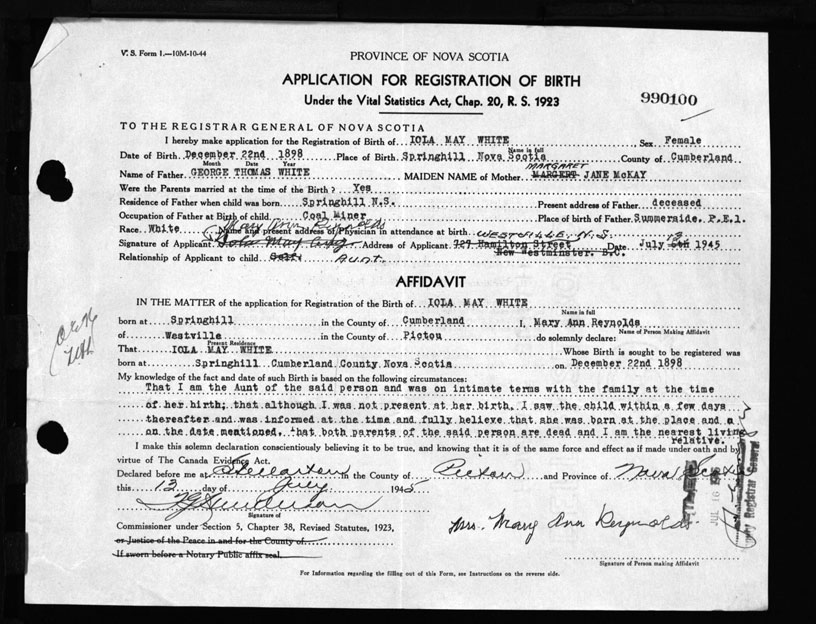 V. S. Form 1.—10M-10-44
PROVINCE OF NOVA SCOTIA
APPLICATION FOR REGISTRATION OF BIRTH
Under the Vital Statistics Act, Chap. 20, R. S. 1923
990100
TO THE REGISTRAR GENERAL OF NOVA SCOTIA
I hereby make application for the Registration of Birth of IOLA MAY WHITE Sex Female
Name in full
Date of Birth December 22nd 1898 Place of Birth Springhill Nova Scotia County of Cumberland
Month Date Year
MARGARET
Name of Father GEORGE THOMAS WHITE MAIDEN NAME of Mother MARGERT JANE McKAY
Were the Parents married at the time of the Birth? Yes
Residence of Father when child was born Springhill N.S. Present address of Father deceased
Occupation of Father at Birth of child Coal Miner Place of birth of Father Summeraide, P.E.1.
Mary Ann Reynolds
Race White Name and present address of Physician in attendance at birth WESTVILLE. N.S.
13
Signature of Applicant Iola May Address of Applicant 727 Hamilton Street Date July 1945
New Westminster. B.C.
Relationship of Applicant to child Self. Aunt.
AFFIDAVIT
IN THE MATTER of the application for Registration of the Birth of IOLA MAY WHITE
Name in full
born at Springhill in the County of Cumberland I, Mary Ann Reynolds
Name of Person Making Affidavit
of Westville in the County of Pictou do solemnly declare:
Present Residence
That IOLA MAY WHITE Whose Birth is sought to be registered was
born at Springhill Cumberland County Nova Scotia on December 22nd 1898
My knowledge of the fact and date of such Birth is based on the following circumstances:
That I am the Aunt of the said person and was on intimate terms with the family at the time
of her birth; that although I was not present at her birth, I saw the child within a few days
thereafter and was informed at the time and fully believe that she was born at the place and a
on the date mentioned. That both parents of the said person are dead and I am the nearest living
relative.
I make this solemn declaration conscientiously believing it to be true, and knowing that it is of the same force and effect as if made under oath and by
virtue of The Canada Evidence Act.
Declared before me at Stellarton in the County of Pictou and Province of Nova Scotia
this 13 day of July 1945
Signature of
Mrs. Mary Ann Reynolds
Commissioner under Section 5, Chapter 38, Revised Statutes, 1923,
or Justice of the Peace in and for the County of
If sworn before a Notary Public affix seal.
Signature of Person making Affidavit
For Information regarding the filling out of this Form, see Instructions on the reverse side.
Registrar General